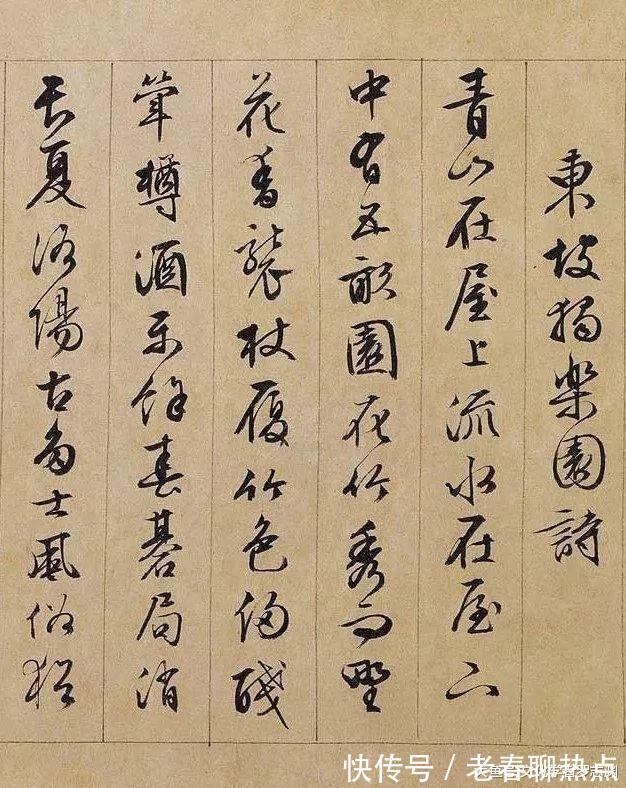 東坡獨楽園詩
青山在屋上流水在屋下
中有五畝園花竹秀而野
花香襲杖屨竹色侵醆
斝樽酒樂餘春碁局消
長夏洛陽古多士風俗猶
快传号 / 老春聊热点